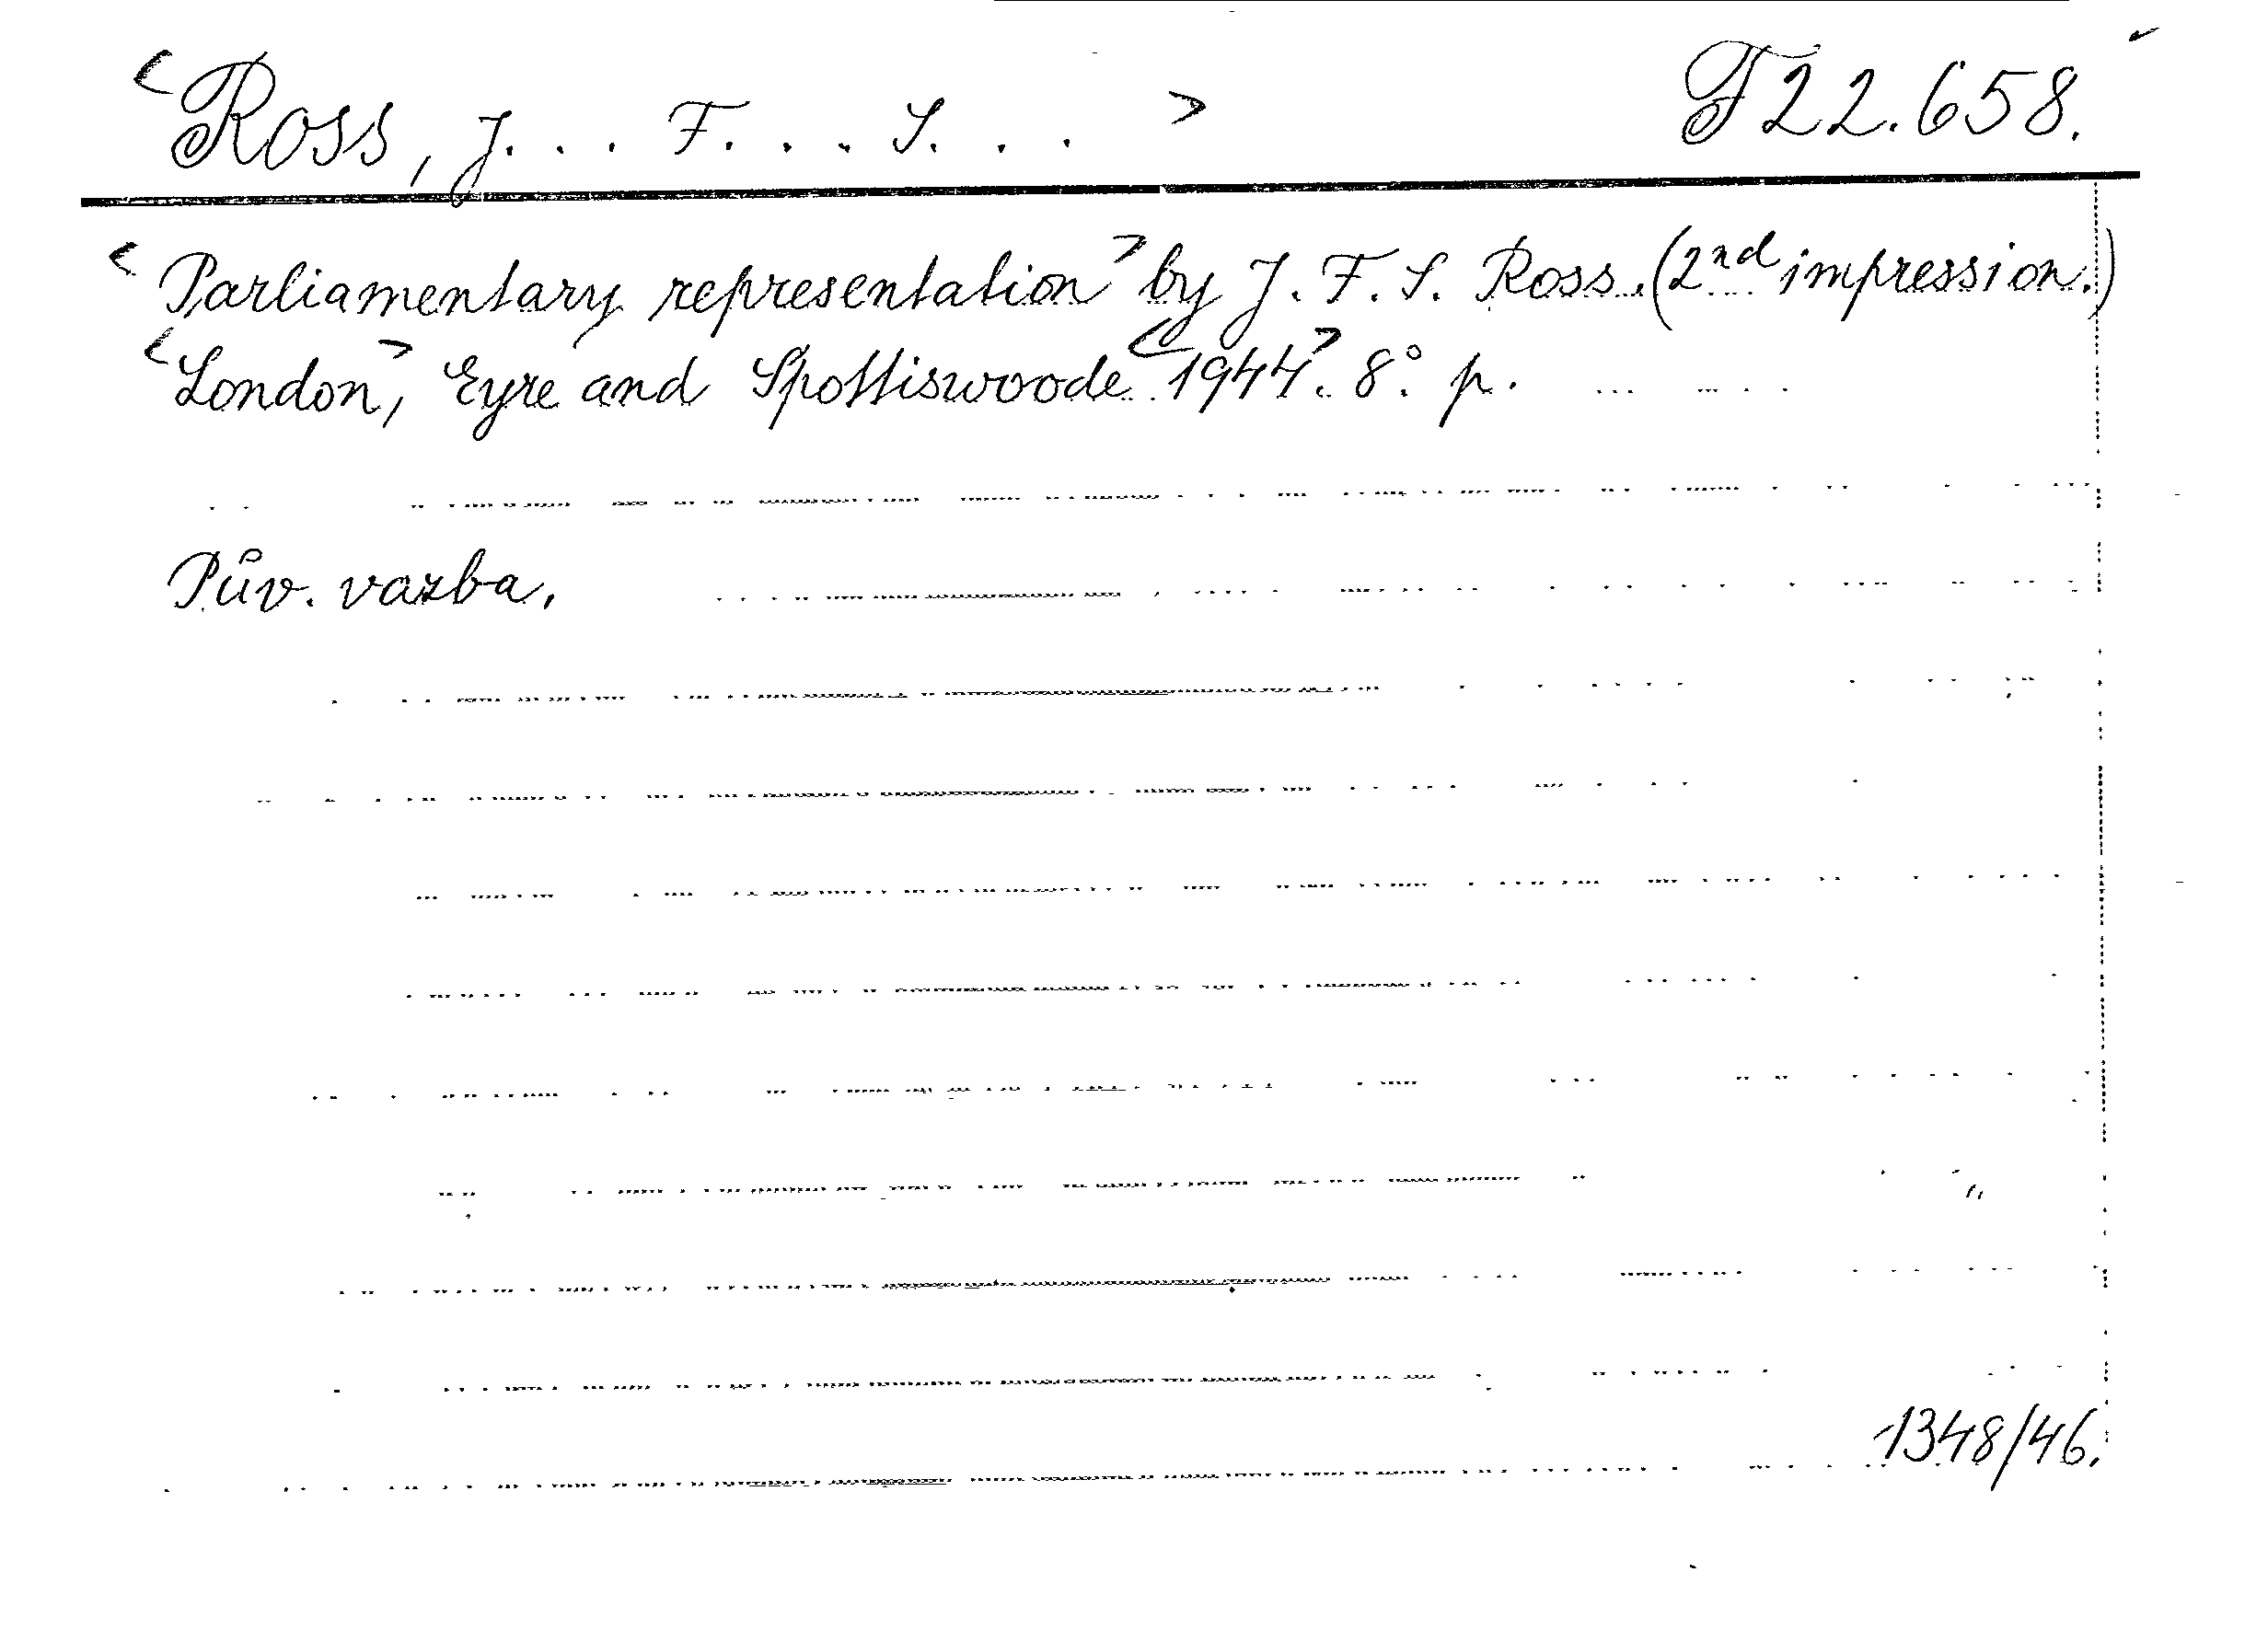 <Ross, J... F... S...> F 22.658.
<Parliamentary representation> by J. F. S. Ross. (2nd impression.)
<London,> Eyre and Spottiswoode <1944>. 8° p.
Pův. vazba.
1348/46.